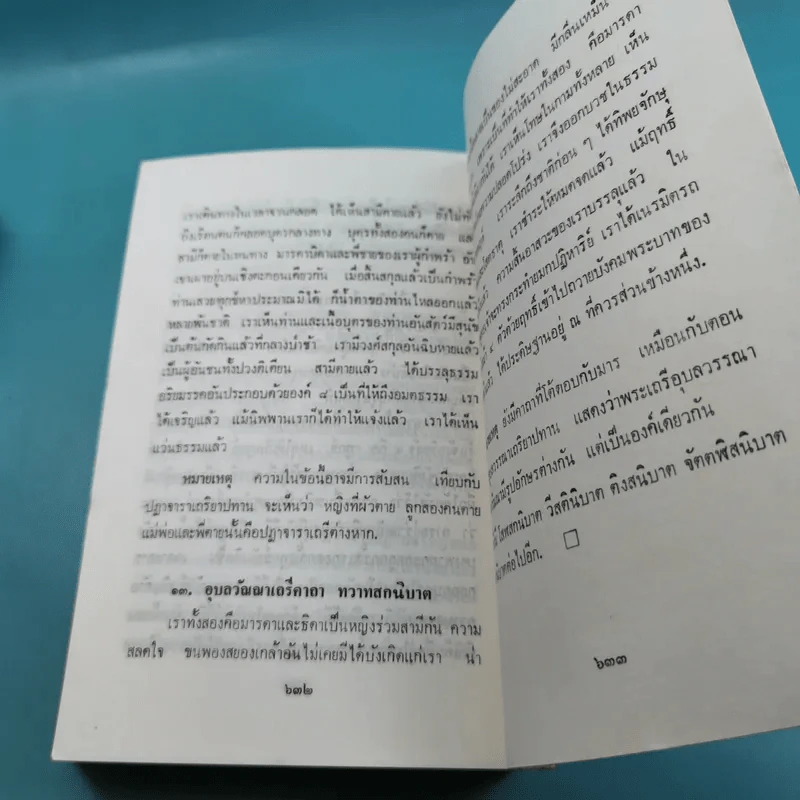 เราเดินทางในเวลาจวนคลอด ได้เห็นสามีตายแล้ว ยังไม่ทัน
ถึงเรือนตนก็คลอดบุตรกลางทาง บุตรทั้งสองคนก็ตาย และ
สามีก็ตายในหนทาง มารดาบิดาและพี่ชายของเราผู้กำพร้า
เขาเผาอยู่บนเชิงตะกอนเดียวกัน เมื่อสิ้นสกุลแล้วเป็นกำพร้า
ท่านเสวยทุกข์หาประมาณมิได้ ก็น้ำตาของท่านไหลออกแล้ว
หลายพันชาติ เราเห็นท่านและเนื้อบุตรของท่านอันสัตว์มีสุนัข
เป็นต้นกัดกินแล้วที่กลางป่าช้า เรามีวงศ์สกุลอันฉิบหายแล้ว
เป็นผู้อันชนทั้งปวงติเตียน สามีตายแล้ว ได้บรรลุธรรม
อริยมรรคอันประกอบด้วยองค์ ๘ เป็นที่ให้ถึงอมตธรรม เรา
ได้เจริญแล้ว แม้นิพพานเราก็ได้ทำให้แจ้งแล้ว เราได้เห็น
แว่นธรรมแล้ว
หมายเหตุ ความในข้อนี้อาจมีการสับสน เทียบกับ
ปฏาจาราเถริยาปทาน จะเห็นว่า หญิงที่ผัวตาย ลูกสองคนตาย
แม่พ่อและพี่ตายนั้นคือปฏาจาราเถรีต่างหาก.
๑๓. อุบลวัณณาเถรีคาถา ทวาทสกนิบาต
เราทั้งสองคือมารดาและธิดาเป็นหญิงร่วมสามีกัน ความ
สลดใจ ขนพองสยองเกล้าอันไม่เคยมีได้บังเกิดแก่เรา น่า
๖๓๒
เป็นของไม่สะอาด มีกลิ่นเหม็น
เป็นที่ทำให้เราทั้งสอง คือมารดา
เราเห็นโทษในกามทั้งหลาย เห็น
ความปลอดโปร่ง เราจึงออกบวชในธรรม
เราระลึกถึงชาติก่อน ๆ ได้ทิพยจักษุ
เราชำระให้หมดจดแล้ว แม้ฤทธิ์
ความสิ้นอาสวะของเราบรรลุแล้ว ใน
จะทรงกระทำยมกปฏิหาริย์ เราได้เนรมิตรถ
ตัวด้วยฤทธิ์เข้าไปถวายบังคมพระบาทของ
ได้ประดิษฐานอยู่ ณ ที่ควรส่วนข้างหนึ่ง.
ยังมีคาถาที่โต้ตอบกับมาร เหมือนกับตอน
เถริยาปทาน แสดงว่าพระเถรีอุบลวรรณา
มีรูปอักษรต่างกัน แต่เป็นองค์เดียวกัน
โสฬสกนิบาต วีสตินิบาต ติงสนิบาต จัตตฬีสนิบาต
ต่อไปอีก. □
๖๓๓